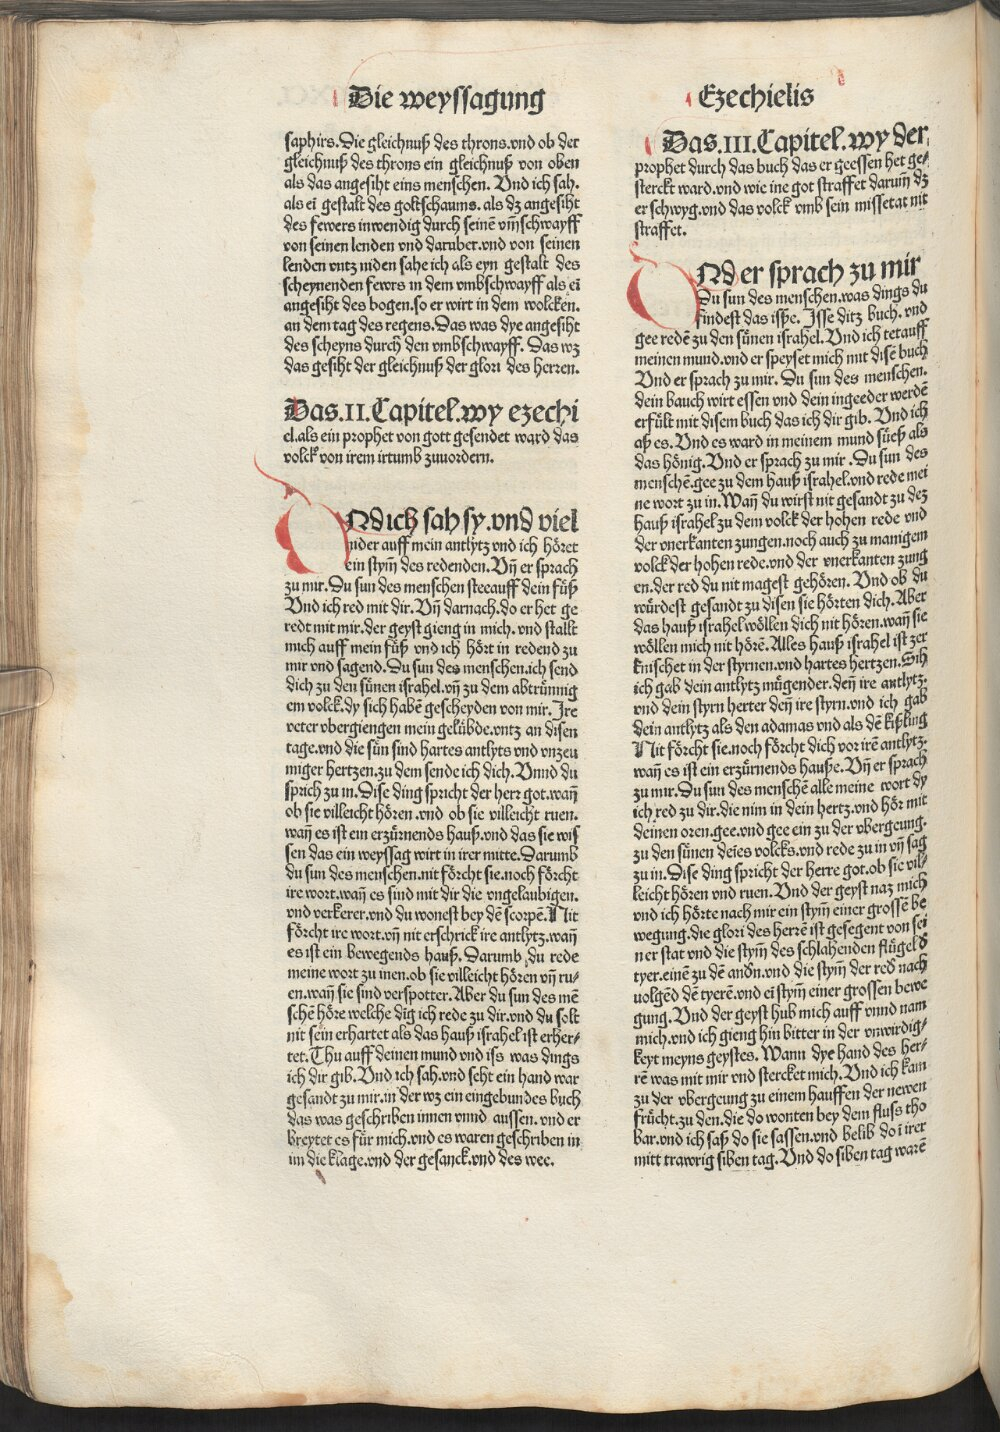 Die weyssagung
Ezechielis
saphirs. Die gleichnuß des throns. vnd ob der
gleichnuß des throns ein gleichnuß von oben
als das angesiht eins menschen. Vnd ich sah.
als eī gestalt des gottschaums. als dz angesiht
des fewers inwendig durch seinē vm̄schwayff
von seinen lenden vnd daruber. vnd von seinen
lenden vntz niden sahe ich als eyn gestalt des
scheynenden fewrs in dem vmbschwayff als eī
angesiht des bogen. so er wirt in dem wolcken.
an dem tag des regens. Das was dye angesiht
des scheyns durch den vmbschwayff. Das wz
das gesiht der gleichnuß der glori des herren.
Das. II. Capitel. wy ezechi
el. als ein prophet von gott gesendet ward das
volck von irem irtumb zuuordern.
VNd ich sah sy. vnd viel
nider auff mein antlytz vnd ich höret
ein stym̄ des redenden. Vn̄ er sprach
zu mir. Du sun des menschen stee auff dein füß
Vnd ich red mit dir. Vn̄ darnach. do er het ge
redt mit mir. der geyst gieng in mich. vnd stallt
mich auff mein füß vnd ich hört in redend zu
mir vnd sagend. Du sun des menschen. ich send
dich zu den sünen israhel. vn̄ zu dem abtrünnig
em volck. dy sich habē gescheyden von mir. Ire
veter vbergiengen mein gelübde. vntz an disen
tage. vnd die sün sind hartes antlyts vnd vnzeu
miger hertzen. zu dem sende ich dich. Vnnd du
sprich zu in. Dise ding spricht der herr got. wan̄
ob sie villeicht hören. vnd ob sie villeicht ruen.
wan̄ es ist ein erzürnends hauß. vnd das sie wis
sen das ein weyssag wirt in irer mitte. Darumb
du sun des menschen. nit förcht sie. noch förcht
ire wort. wan̄ es sind mit dir die vngelaubigen.
vnd verkerer. vnd du wonest bey dē scorpē. Nit
förcht ire wort. vn̄ nit erschrick ire antlytz. wan̄
es ist ein bewegends hauß. Darumb du rede
meine wort zu inen. ob sie villeicht hören vn̄ ru⸗
en. wan̄ sie sind verspotter. Aber du sun des mē
schē höre welche dig ich rede zu dir. vnd du solt
nit sein erhartet als das hauß israhel ist erher⸗
tet. Thu auff deinen mund vnd iss was dings
ich dir gib. Vnd ich sah. vnd seht ein hand war
gesandt zu mir. in der wz ein eingebundes buch
das was geschriben innen vnnd aussen. vnd er
breytet es für mich. vnd es waren geschriben in
im die klage. vnd der gesanck. vnd des wee.
Das. III. Capitel. wy der.
prophet durch das buch das er geessen het ge⸗
sterckt ward. vnd wie ine got straffet darum̄ dz
er schwyg. vnd das volck vmb sein missetat nit
straffet.
VNd er sprach zu mir
Du sun des menschen. was dings du
findest das isße. Isse ditz buch. vnd
gee redē zu den sünen israhel. Vnd ich tet auff
meinen mund. vnd er speyset mich mit disē buch
Vnd er sprach zu mir. Du sun des menschen.
dein bauch wirt essen vnd dein ingeeder werdē
erfült mit disem buch das ich dir gib. Vnd ich
aß es. Vnd es ward in meinem mund süeß als
das hönig. Vnd er sprach zu mir. Du sun des
menschē. gee zu dem hauß israhel. vnd rede mei
ne wort zu in. Wan̄ du wirst nit gesandt zu dez
hauß israhel zu dem volck der hohen rede vnd
der vnerkanten zungen. noch auch zu manigem
volck der hohen rede. vnd der vnerkanten zung
en. der red du nit magest gehören. Vnd ob du
würdest gesandt zu disen sie hörten dich. Aber
das hauß israhel wöllen dich nit hören. wan̄ sie
wöllen mich nit hörē. Alles hauß israhel ist zer
knischet in der styrnen. vnd hartes hertzen. Sih
ich gab dein antlytz mügender. den̄ ire antlytz.
vnd dein styrn herter den̄ ire styrn. vnd ich gab
dein antlytz als den adamas vnd als dē kißling
Nit förcht sie. noch förcht dich vor irē antlytz.
wan̄ es ist ein erzürnends hauße. Vn̄ er sprach
zu mir. Du sun des menschē alle meine wort dy
ich red zu dir. die nim in dein hertz. vnd hör mit
deinen oren. gee. vnd gee ein zu der vbergeung.
zu den sünen deīes volcks. vnd rede zu in vn̄ sag
zu in. Dise ding spricht der herre got. ob sie vil⸗
leicht hören vnd ruen. Vnd der geyst naz mich
vnd ich hörte nach mir ein stym̄ einer grossē be
wegung. die glori des herrē ist gesegent von sei
ner stat vnd die stym̄ des schlahenden flügel d̄
tyer. einē zu dē andn̄. vnd die stym̄ der red̄ nach
uolgēd dē tyerē. vnd eī stym̄ einer grossen bewe
gung. Vnd der geyst hub mich auff vnnd nam
mich. vnd ich gieng hin bitter in der vnwirdig⸗
keyt meyns geystes. Wann dye hand des her⸗
rē was mit mir vnd stercket mich. Vnd ich kam
zu der vbergeung zu einem hauffen der newen
frücht. zu den. die do wonten bey dem fluss tho
bar. vnd ich saß do sie sassen. vnd belib do ī irer
mitt trawrig siben tag. Vnd do siben tag warē